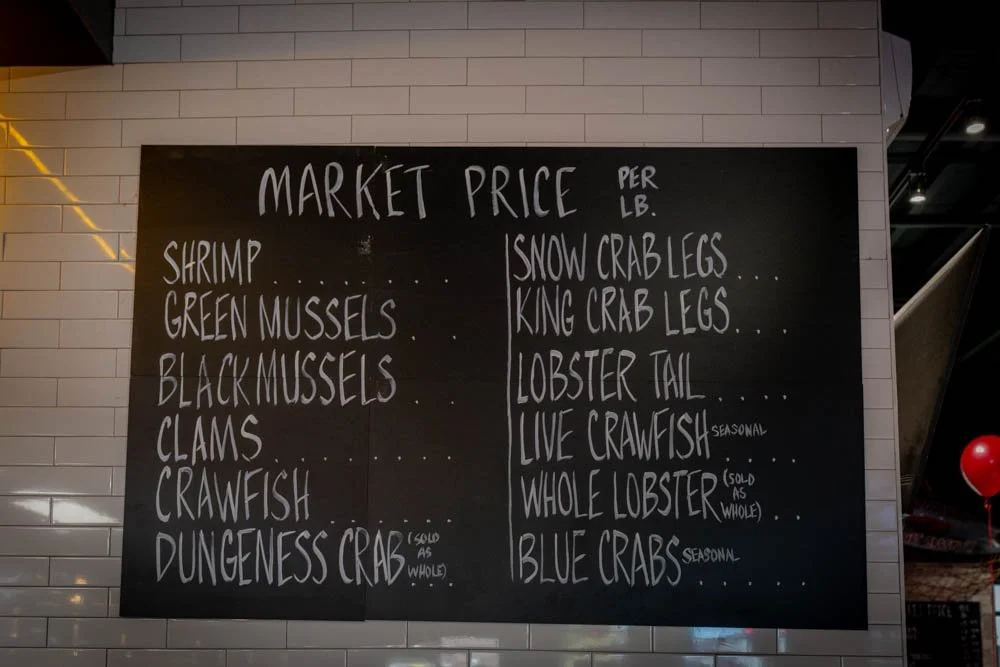 MARKET PRICE PER LB.
SHRIMP . . . . . . . .
GREEN MUSSELS . .
BLACK MUSSELS . .
CLAMS . . . . . . . . .
CRAWFISH . . . . . . .
DUNGENESS CRAB (SOLD AS WHOLE) . . .
SNOW CRAB LEGS . . . .
KING CRAB LEGS . . . .
LOBSTER TAIL . . . . .
LIVE CRAWFISH SEASONAL . . . .
WHOLE LOBSTER (SOLD AS WHOLE) . .
BLUE CRABS SEASONAL . . . . . .